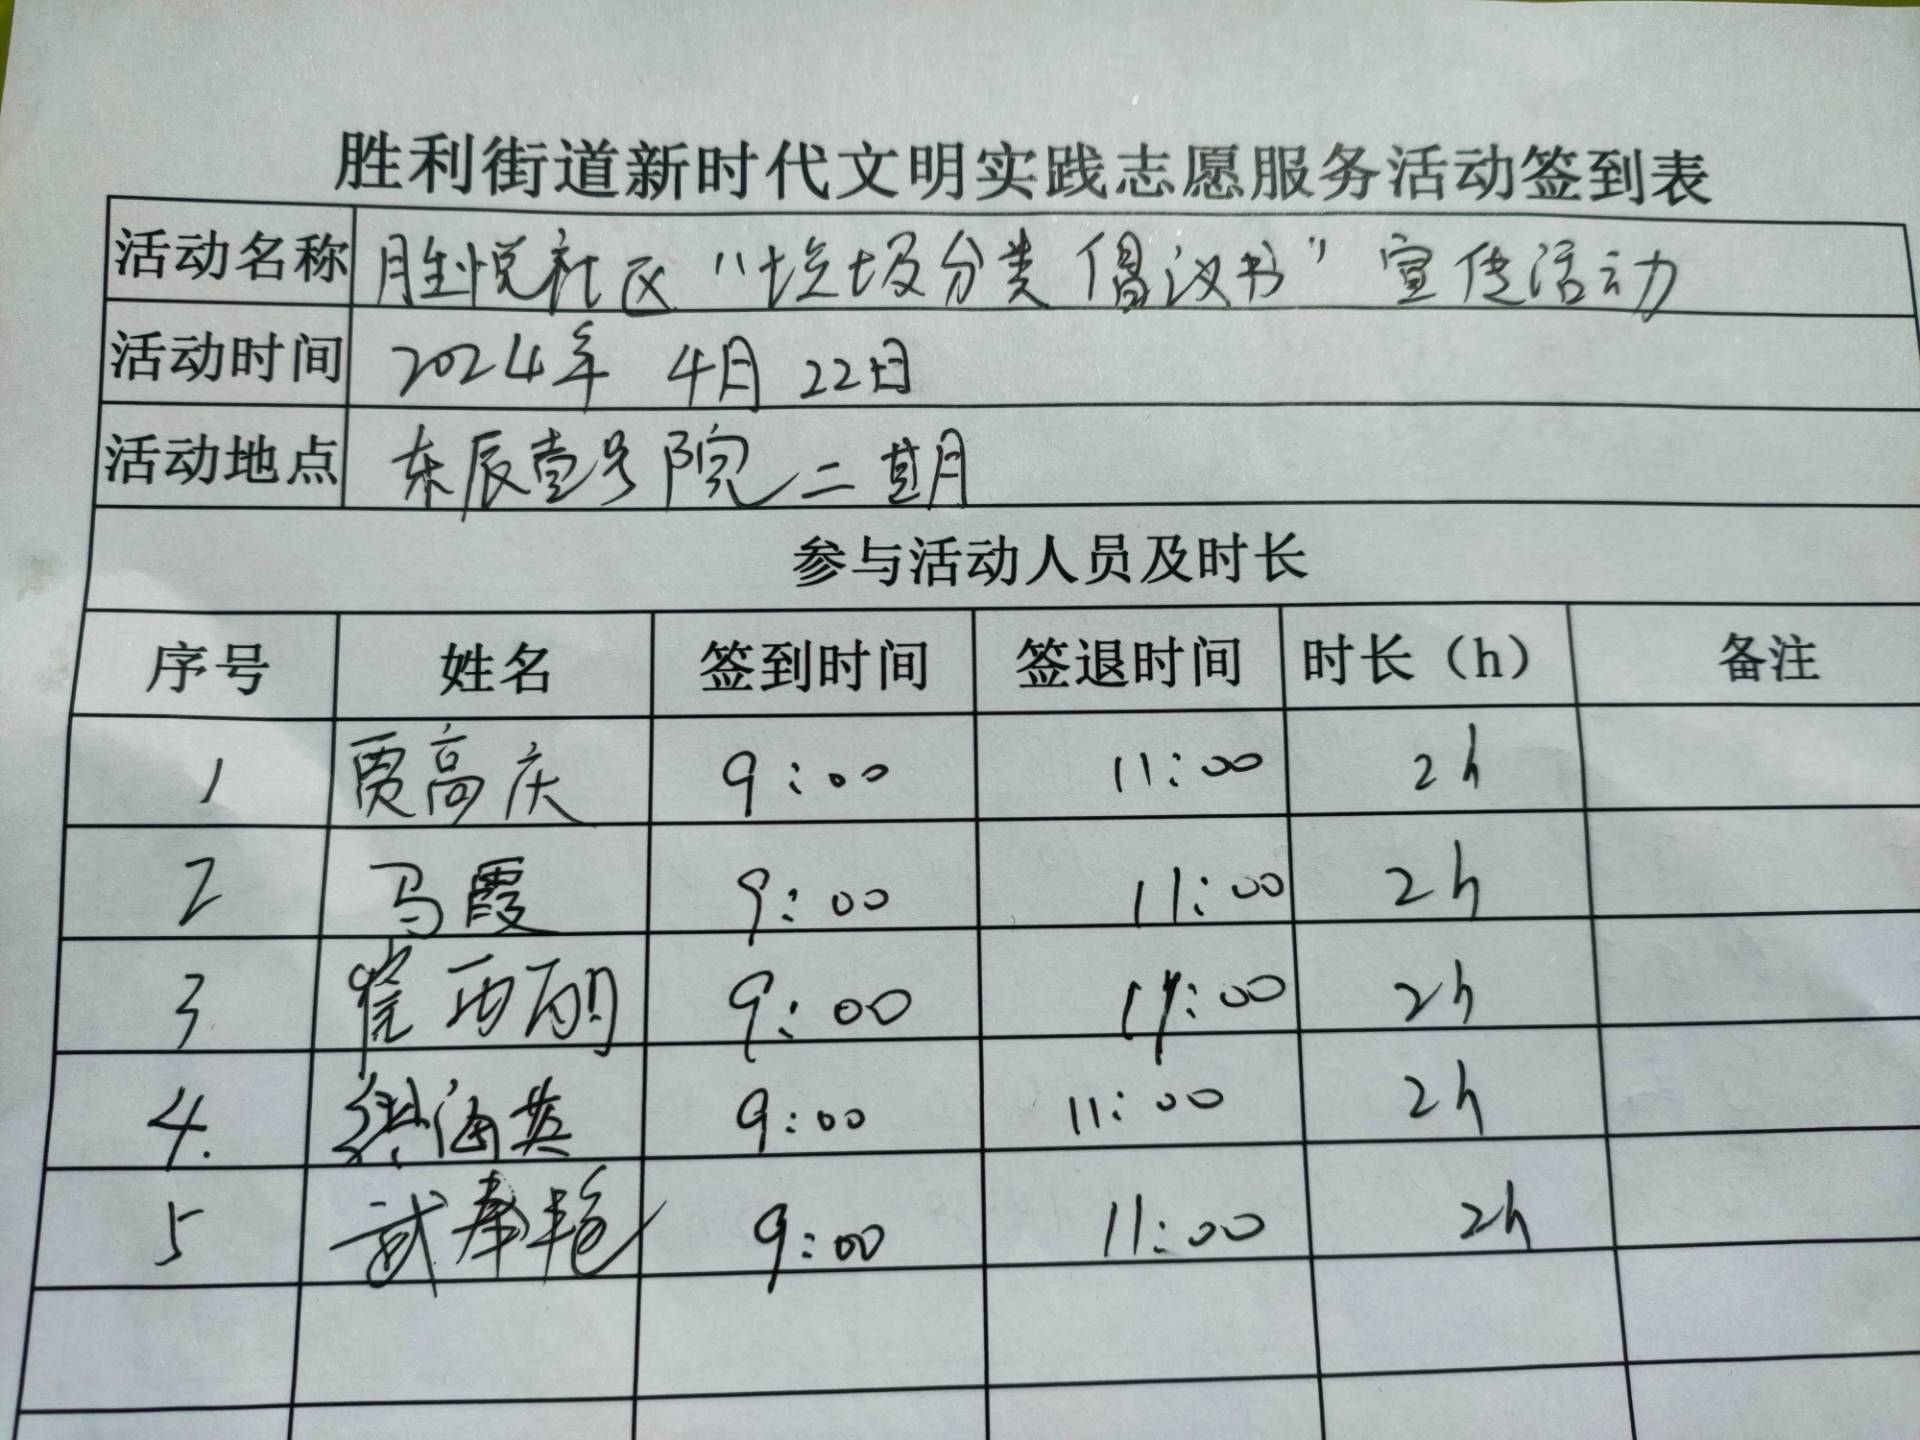 胜利街道新时代文明实践志愿服务活动签到表
活动名称 胜悦社区“垃圾分类倡议书”宣传活动
活动时间 2024年 4月 22日
活动地点 东辰壹号院二期
参与活动人员及时长
序号 姓名 签到时间 签退时间 时长（h） 备注
1 贾高庆 9:00 11:00 2h
2 马霞 9:00 11:00 2h
3 崔丽 9:00 11:00 2h
4. 洪海英 9:00 11:00 2h
5 武春艳 9:00 11:00 2h